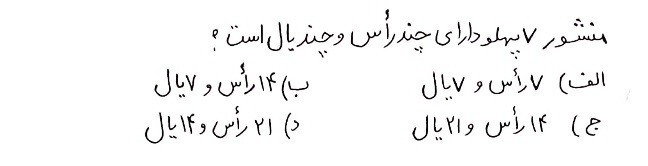 منشور ۷ پهلو دارای چند رأس و چند یال است ؟
الف) ۷ رأس و ۷ یال ب) ۱۴ رأس و ۷ یال
ج) ۱۴ رأس و ۲۱ یال د) ۲۱ رأس و ۱۴ یال